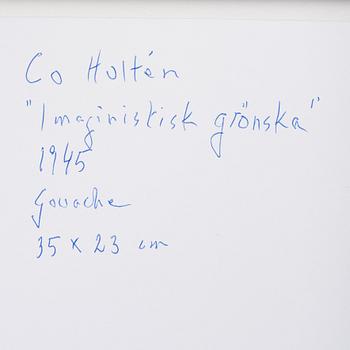 Co Hultén
"Imaginistisk grönska"
1945
Gouache
35 x 23 cm